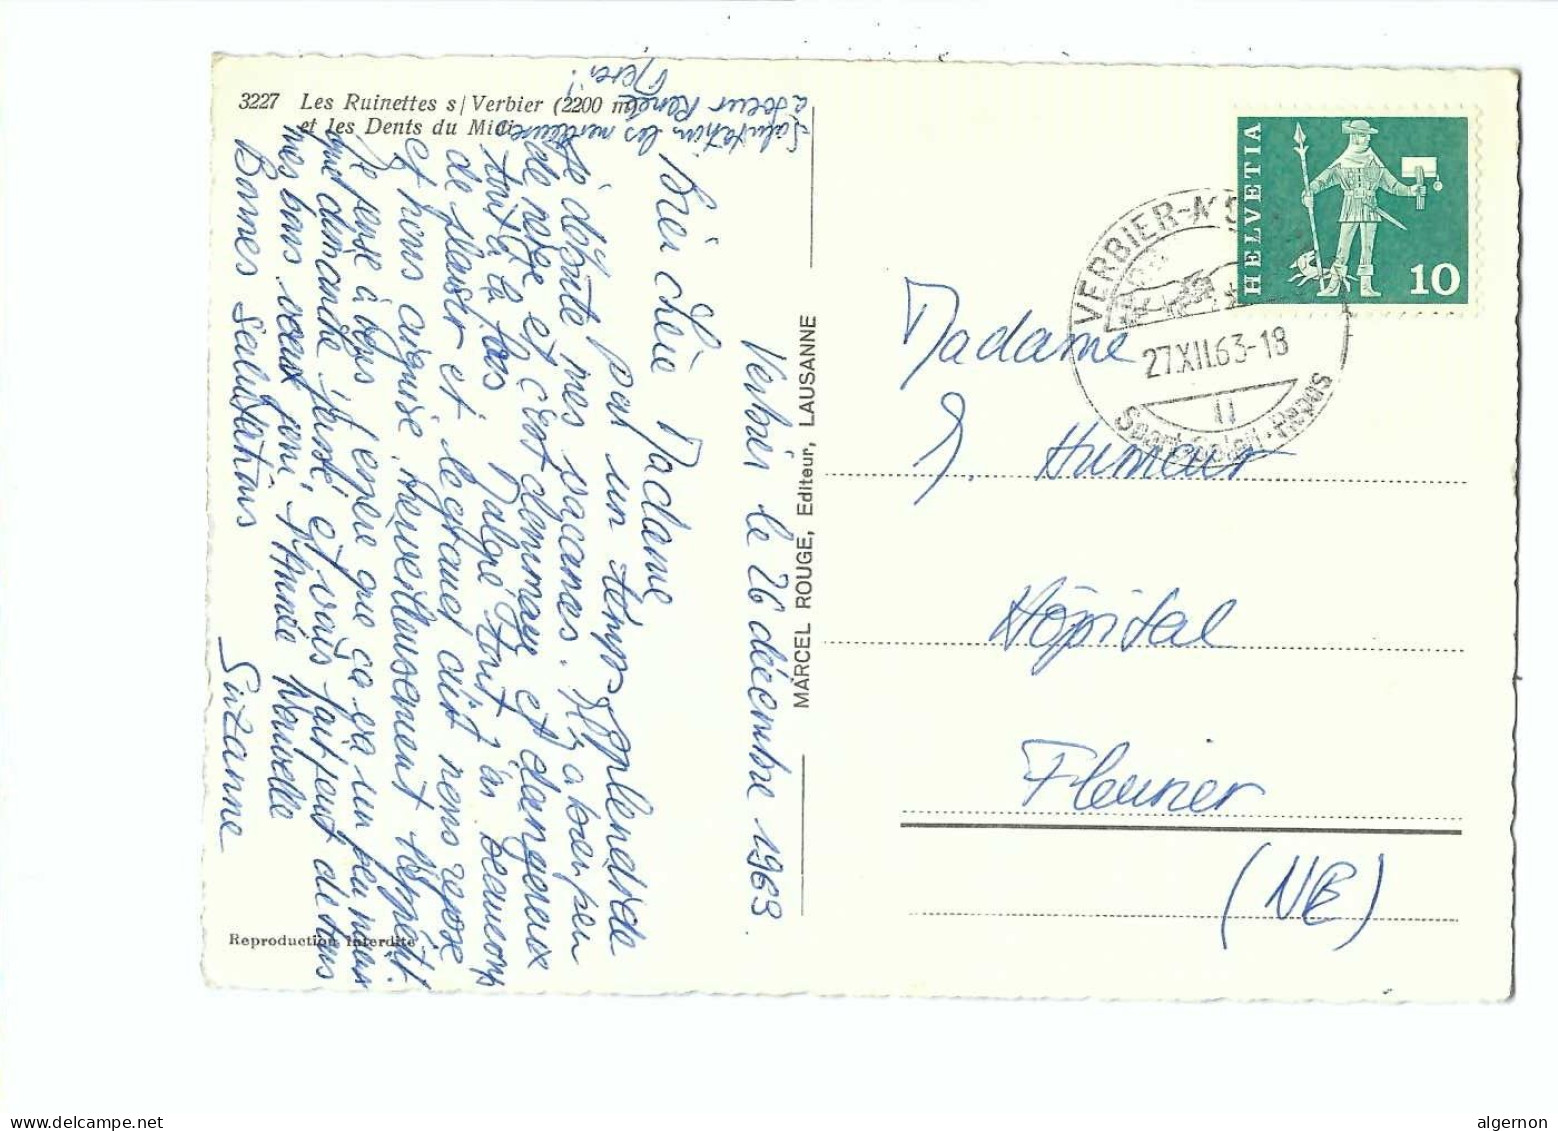 3227 Les Ruinettes s/Verbier (2200 m)
et les Dents du Midi
Verbier le 26 décembre 1963.
Bien chère Madame
par un temps splendide
j'ai débuté mes vacances. Il y a bien peu
de neige et c'est dommage et dangereux
tout à la fois. Malgré tout j'ai beaucoup
de plaisir et le grand air nous repose
et nous aiguise merveilleusement l'appétit.
Je pense à vous, j'espère que ça va un peu mieux
que dimanche passé, et vous fait part de tous
mes bons vœux pour l'Année Nouvelle
Bonnes Salutations
Suzanne
Salutation les meilleures
à Sœur Renée
Merci!
Reproduction interdite
MARCEL ROUGE, Editeur, LAUSANNE
HELVETIA
10
VERBIER
27.XII.63-18
Sport · Soleil · Repos
Madame
S. Humair
Hôpital
Fleurier
(NE)
algernon